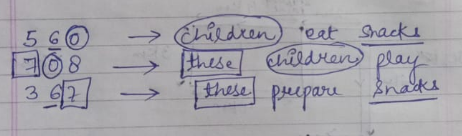 5 6 0 → children eat snacks
7 0 8 → these children play
3 6 7 → these prepare snacks